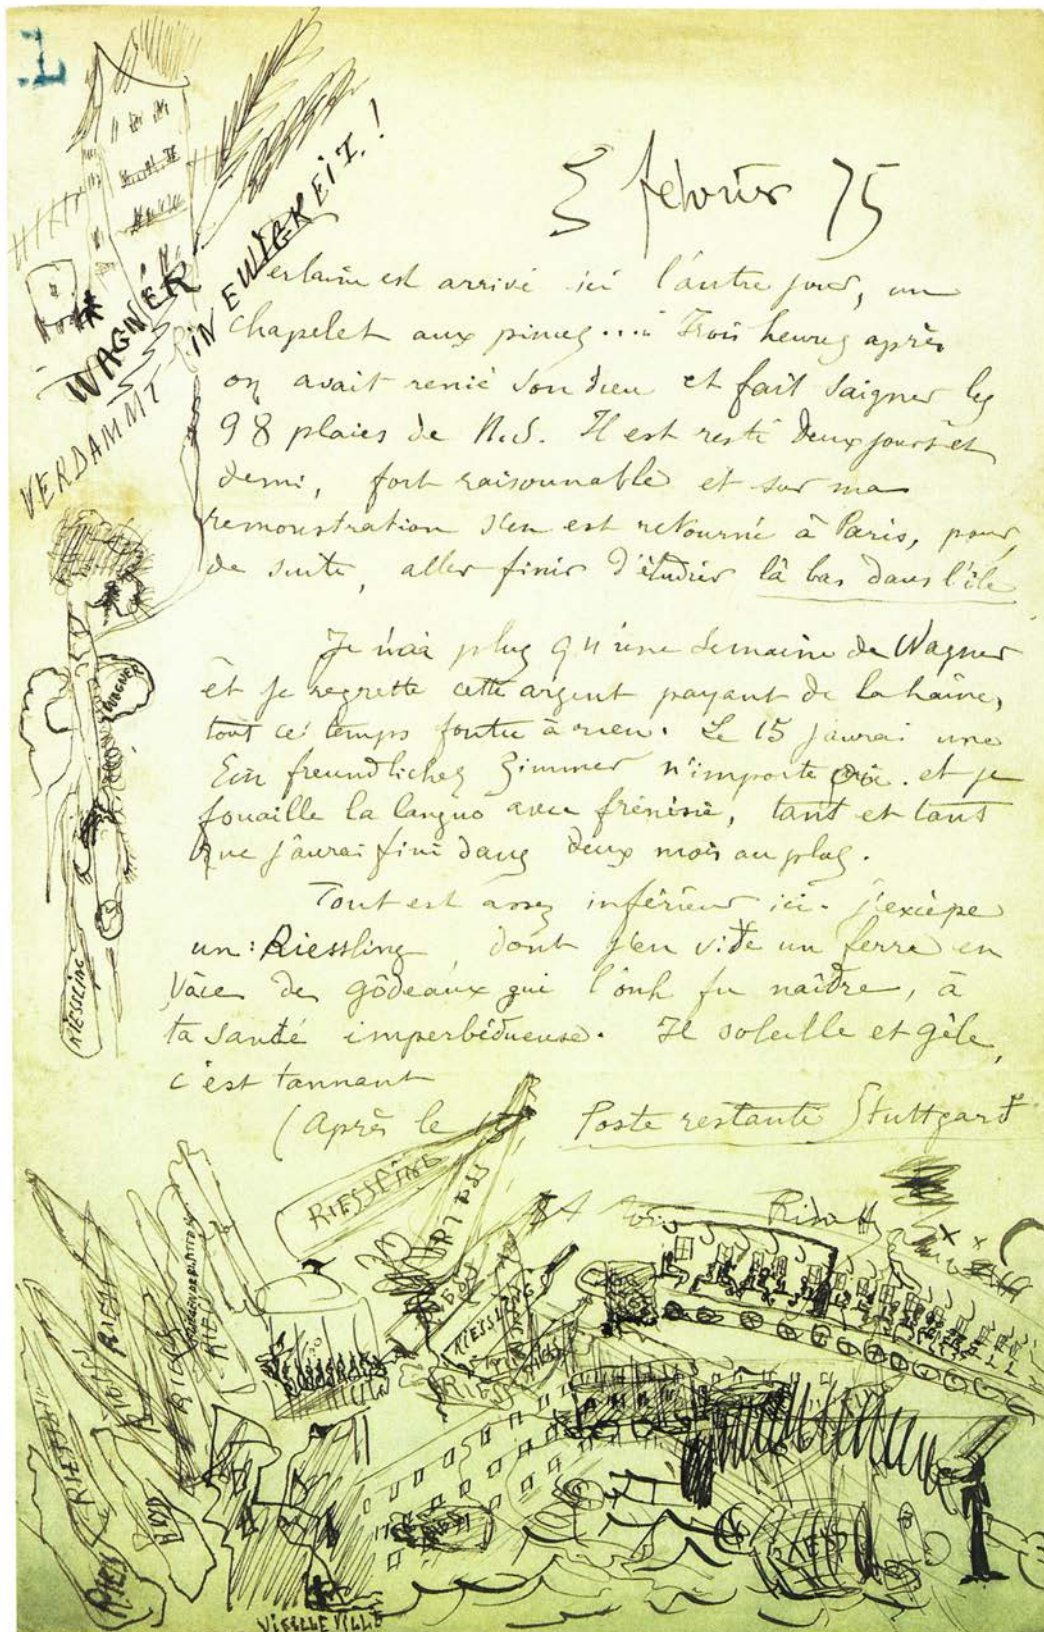 5 février 75
Verlaine est arrivé ici l'autre jour, un
chapelet aux pinces.... Trois heures après
on avait renié son dieu et fait saigner les
98 plaies de N.S. Il est resté deux jours et
demi, fort raisonnable et sur ma
remonstration s'en est retourné à Paris, pour,
de suite, aller finir d'étudier là bas dans l'île
Je n'ai plus qu'une semaine de Wagner
et je regrette cette argent payant de la haine,
tout ce temps foutu à rien. Le 15 j'aurai une
Ein freundliches Zimmer n'importe où. et je
fouaille la langue avec frénésie, tant et tant
que j'aurai fini dans deux mois au plus.
Tout est assez inférieur ici. j'excèpe
un : Riessling, dont j'en vite un ferre en
vâce des gôdeaux qui l'onh fu naîdre, à
ta santé imperbédueuse. Il soleille et gèle,
c'est tannant
(Après le 15 Poste restante Stuttgart
WAGNER
VERDAMMT IN EWIGKEIT!
WAGNER
RIESSLING
RIESSLING
RIESS
RIESSLING
RIESS
RIESS
RIES
RIES
RIESS
RIES
RIES
VIEILLE VILLE